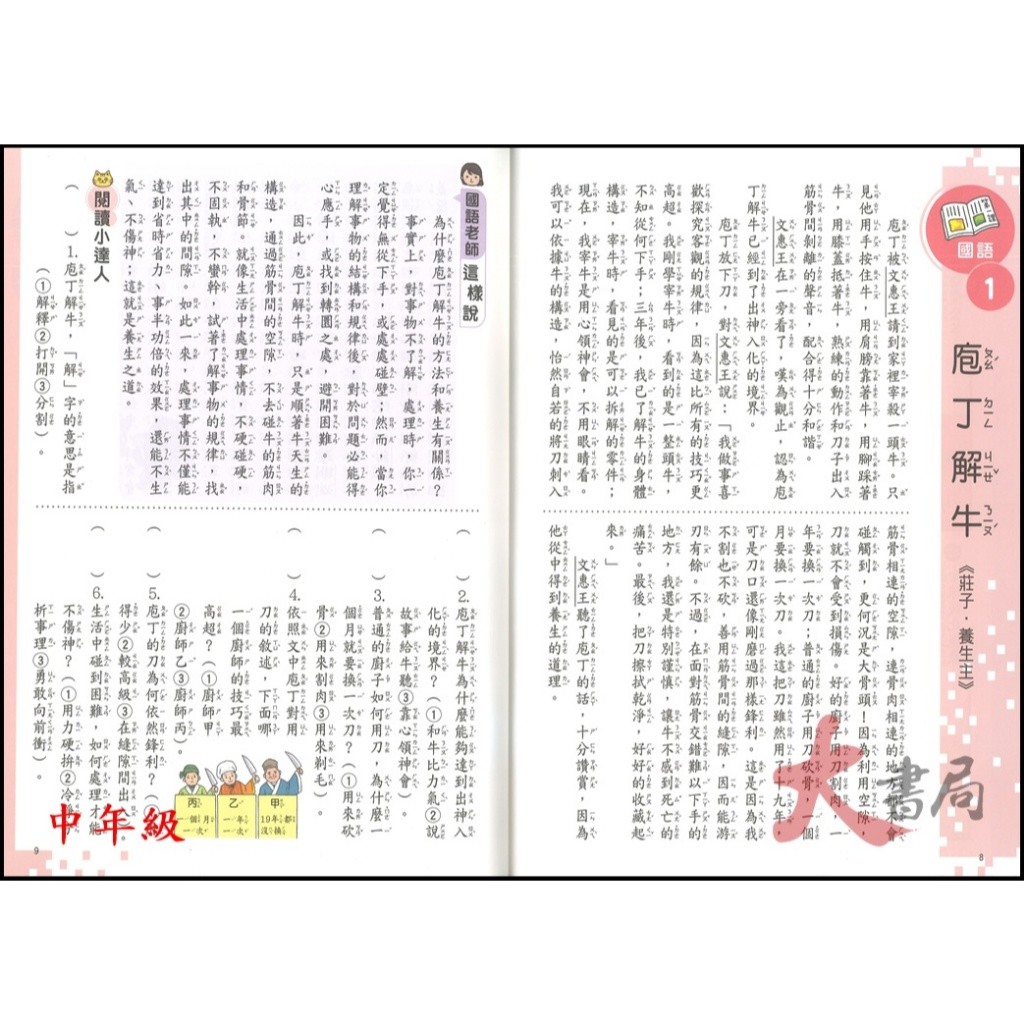 國語
1
庖丁解牛
《莊子．養生主》
庖丁被文惠王請到家裡宰殺一頭牛。只
見他用手按住牛，用肩膀靠著牛，用腳踩著
牛，用膝蓋抵著牛，熟練的動作和刀子出入
筋骨間剝離的聲音，配合得十分和諧。
文惠王在一旁看了，嘆為觀止，認為庖
丁解牛已經到了出神入化的境界。
庖丁放下刀，對文惠王說：「我做事喜
歡探究客觀的規律，因為這比所有的技巧更
高超。我剛學宰牛時，看到的是一整頭牛，
不知從何下手；三年後，我已了解牛的身體
構造，宰牛時，看見的是可以拆解的零件；
現在，我宰牛是用心領神會，不用眼睛看。
我可以依據牛的構造，怡然自若的將刀刺入
筋骨相連的空隙，連骨肉相連的地方都不會
碰觸到，更何況是大骨頭！因為利用空隙，
刀就不會受到損傷。好的廚子用刀割肉，一
年要換一次刀；普通的廚子用刀砍骨，一個
月要換一次刀。我這把刀雖然用了十九年，
可是刀口還像剛磨過那樣鋒利。這是因為我
不割也不砍，善用筋骨間的縫隙，因而能游
刃有餘。不過，在面對筋骨交錯難以下手的
地方，我還是特別謹慎，讓牛不感到死亡的
痛苦。最後，把刀擦拭乾淨，好好的收藏起
來。」
文惠王聽了庖丁的話，十分讚賞，因為
他從中得到養生的道理。
大書局
8
國語老師這樣說
為什麼庖丁解牛的方法和養生有關係？
事實上，對事物不了解，處理時，你一
定覺得無從下手，或處處碰壁；然而，當你
理解事物的結構和規律後，對於問題必能得
心應手，或找到轉圜之處，避開困難。
因此，庖丁解牛時，只是順著牛天生的
構造，通過筋骨間的空隙，不去碰牛的筋肉
和骨節。就像生活中處理事情，不硬碰硬，
不固執，不蠻幹，試著了解事物的規律，找
出其中的間隙。如此一來，處理事情不僅能
達到省時省力、事半功倍的效果，還能不生
氣、不傷神；這就是養生之道。
閱讀小達人
（　）1.庖丁解牛，「解」字的意思是指
（①解釋②打開③分割）。
（　）2.庖丁解牛為什麼能夠達到出神入
化的境界？（①和牛比力氣②說
故事給牛聽③靠心領神會）。
（　）3.普通的廚子如何用刀，為什麼一
個月就要換一次刀？（①用來砍
骨②用來割肉③用來剃毛）。
（　）4.依照文中庖丁對用
刀的敘述，下面哪
一個廚師的技巧最
高超？（①廚師甲
②廚師乙③廚師丙）。
甲
19年都
沒換
乙
一年
一次
丙
一個月
一次
（　）5.庖丁的刀為何依然鋒利？（
得少②較高級③在縫隙間出
（　）6.生活中碰到困難，如何處理才能
不傷神？（①用力硬拚②冷靜
析事理③勇敢向前衝）。
中年級
9